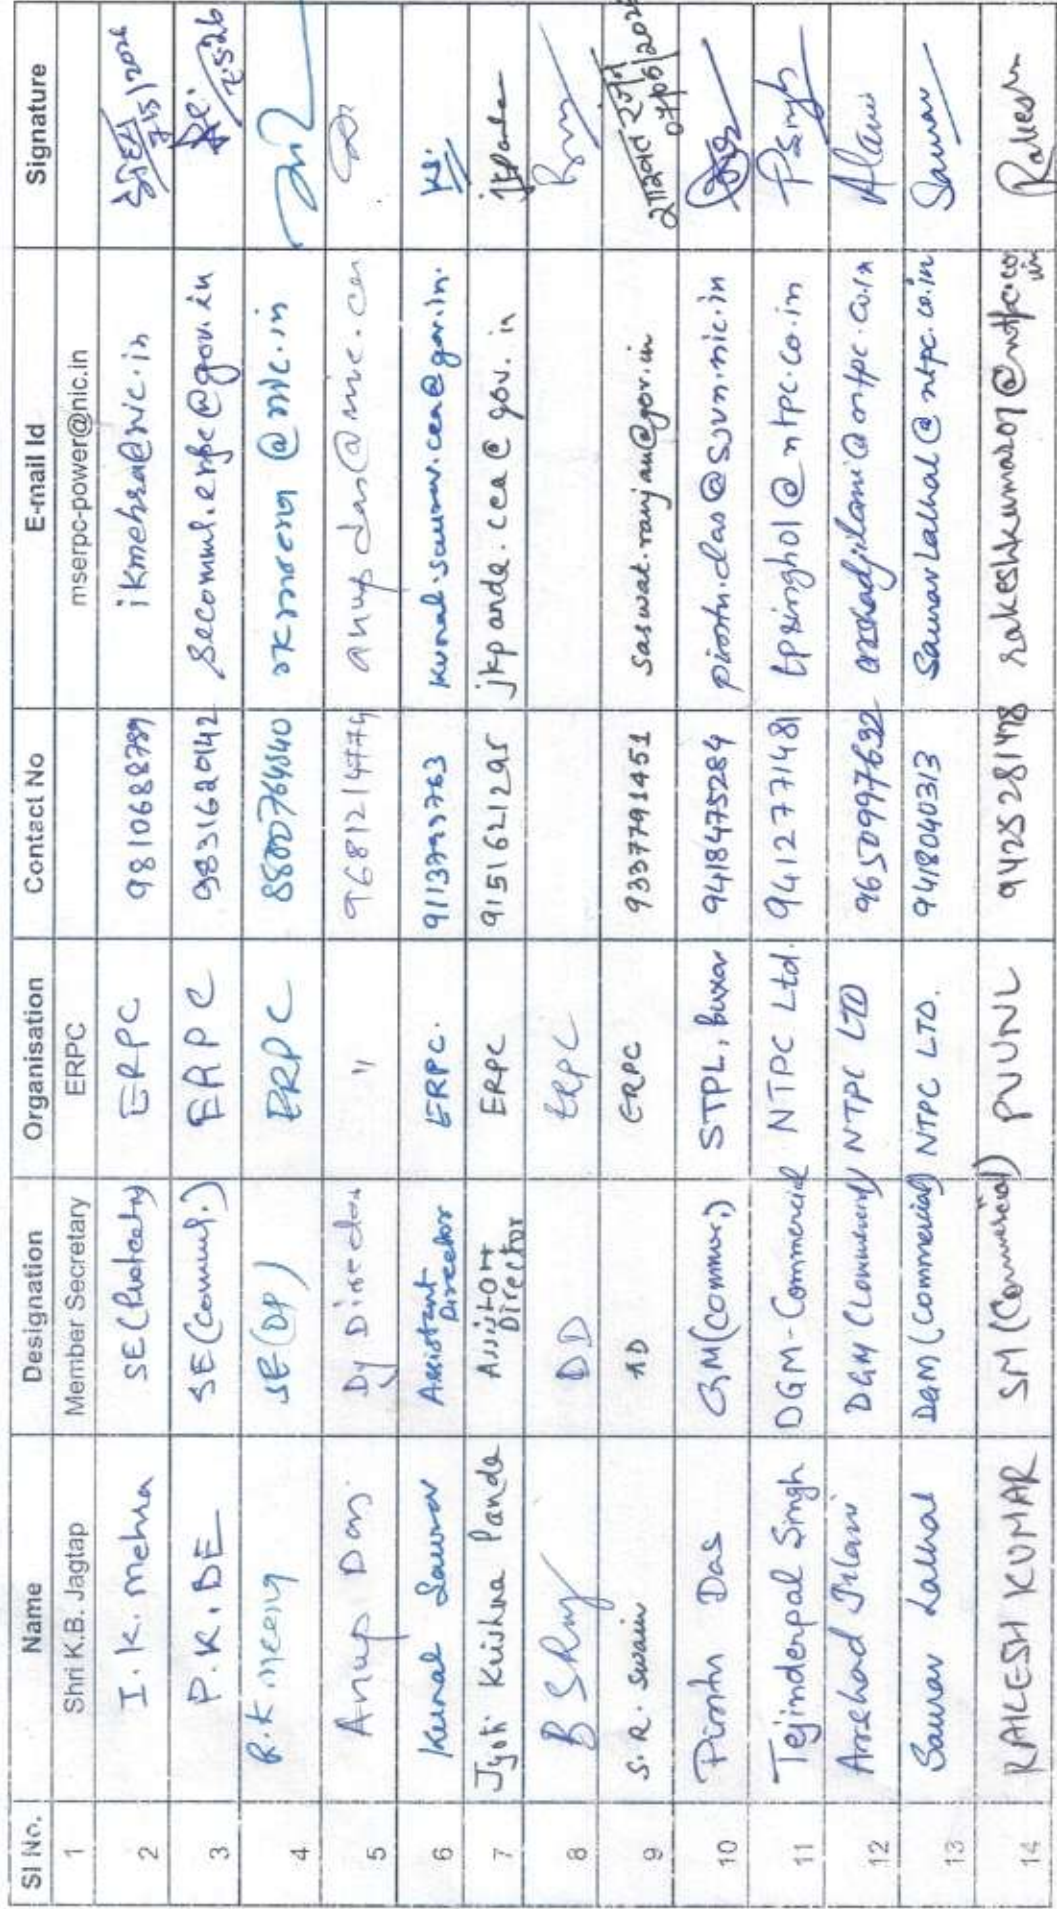 Sl No. Name Designation Organisation Contact No E-mail Id Signature
1 Shri K.B. Jagtap Member Secretary ERPC mserpc-power@nic.in
2 I. K. Mehra SE(Protectn) ERPC 9810688789 ikmehra@nic.in 7/5/2026
3 P. K. DE SE(Comml.) ERPC 9831620142 secomml.erpc@gov.in 7.5.26
4 R. K meena SE(OP) ERPC rkmeena@nic.in
5 Anup Das Dy Director " anupdas@nic.
6 Kunal Saurav Assistant Director ERPC. kunal.saurav.cea@gov.in. KS.
7 Jyoti Krishna Pande Assistant Director ERPC 9151621295 jkpande.cea@gov.in jkpande
8 B DD ERPC
9 S. R. Swain AD ERPC 9337791451 saswat.ranjan@gov.in
10 Pintu Das GM(Comm.) STPL, Buxar 9418475284 pintu.das@sjvn.nic.in
11 Tejinderpal Singh DGM-Commercial NTPC Ltd. 9412771481 tpsingh01@ntpc.co.in TPSingh
12 Arrehad DGM (Commercial) NTPC LTD 9650997632 @ntpc.co.in
13 Saurav Lakhal DGM (Commercial) NTPC LTD. 9418040313 Sauravlakhal@ntpc.co.in Saurav
14 RAKESH KUMAR SM (Commercial) PVUNL 9425281478 rakeshkumar207@ntpc.co.in Rakesh